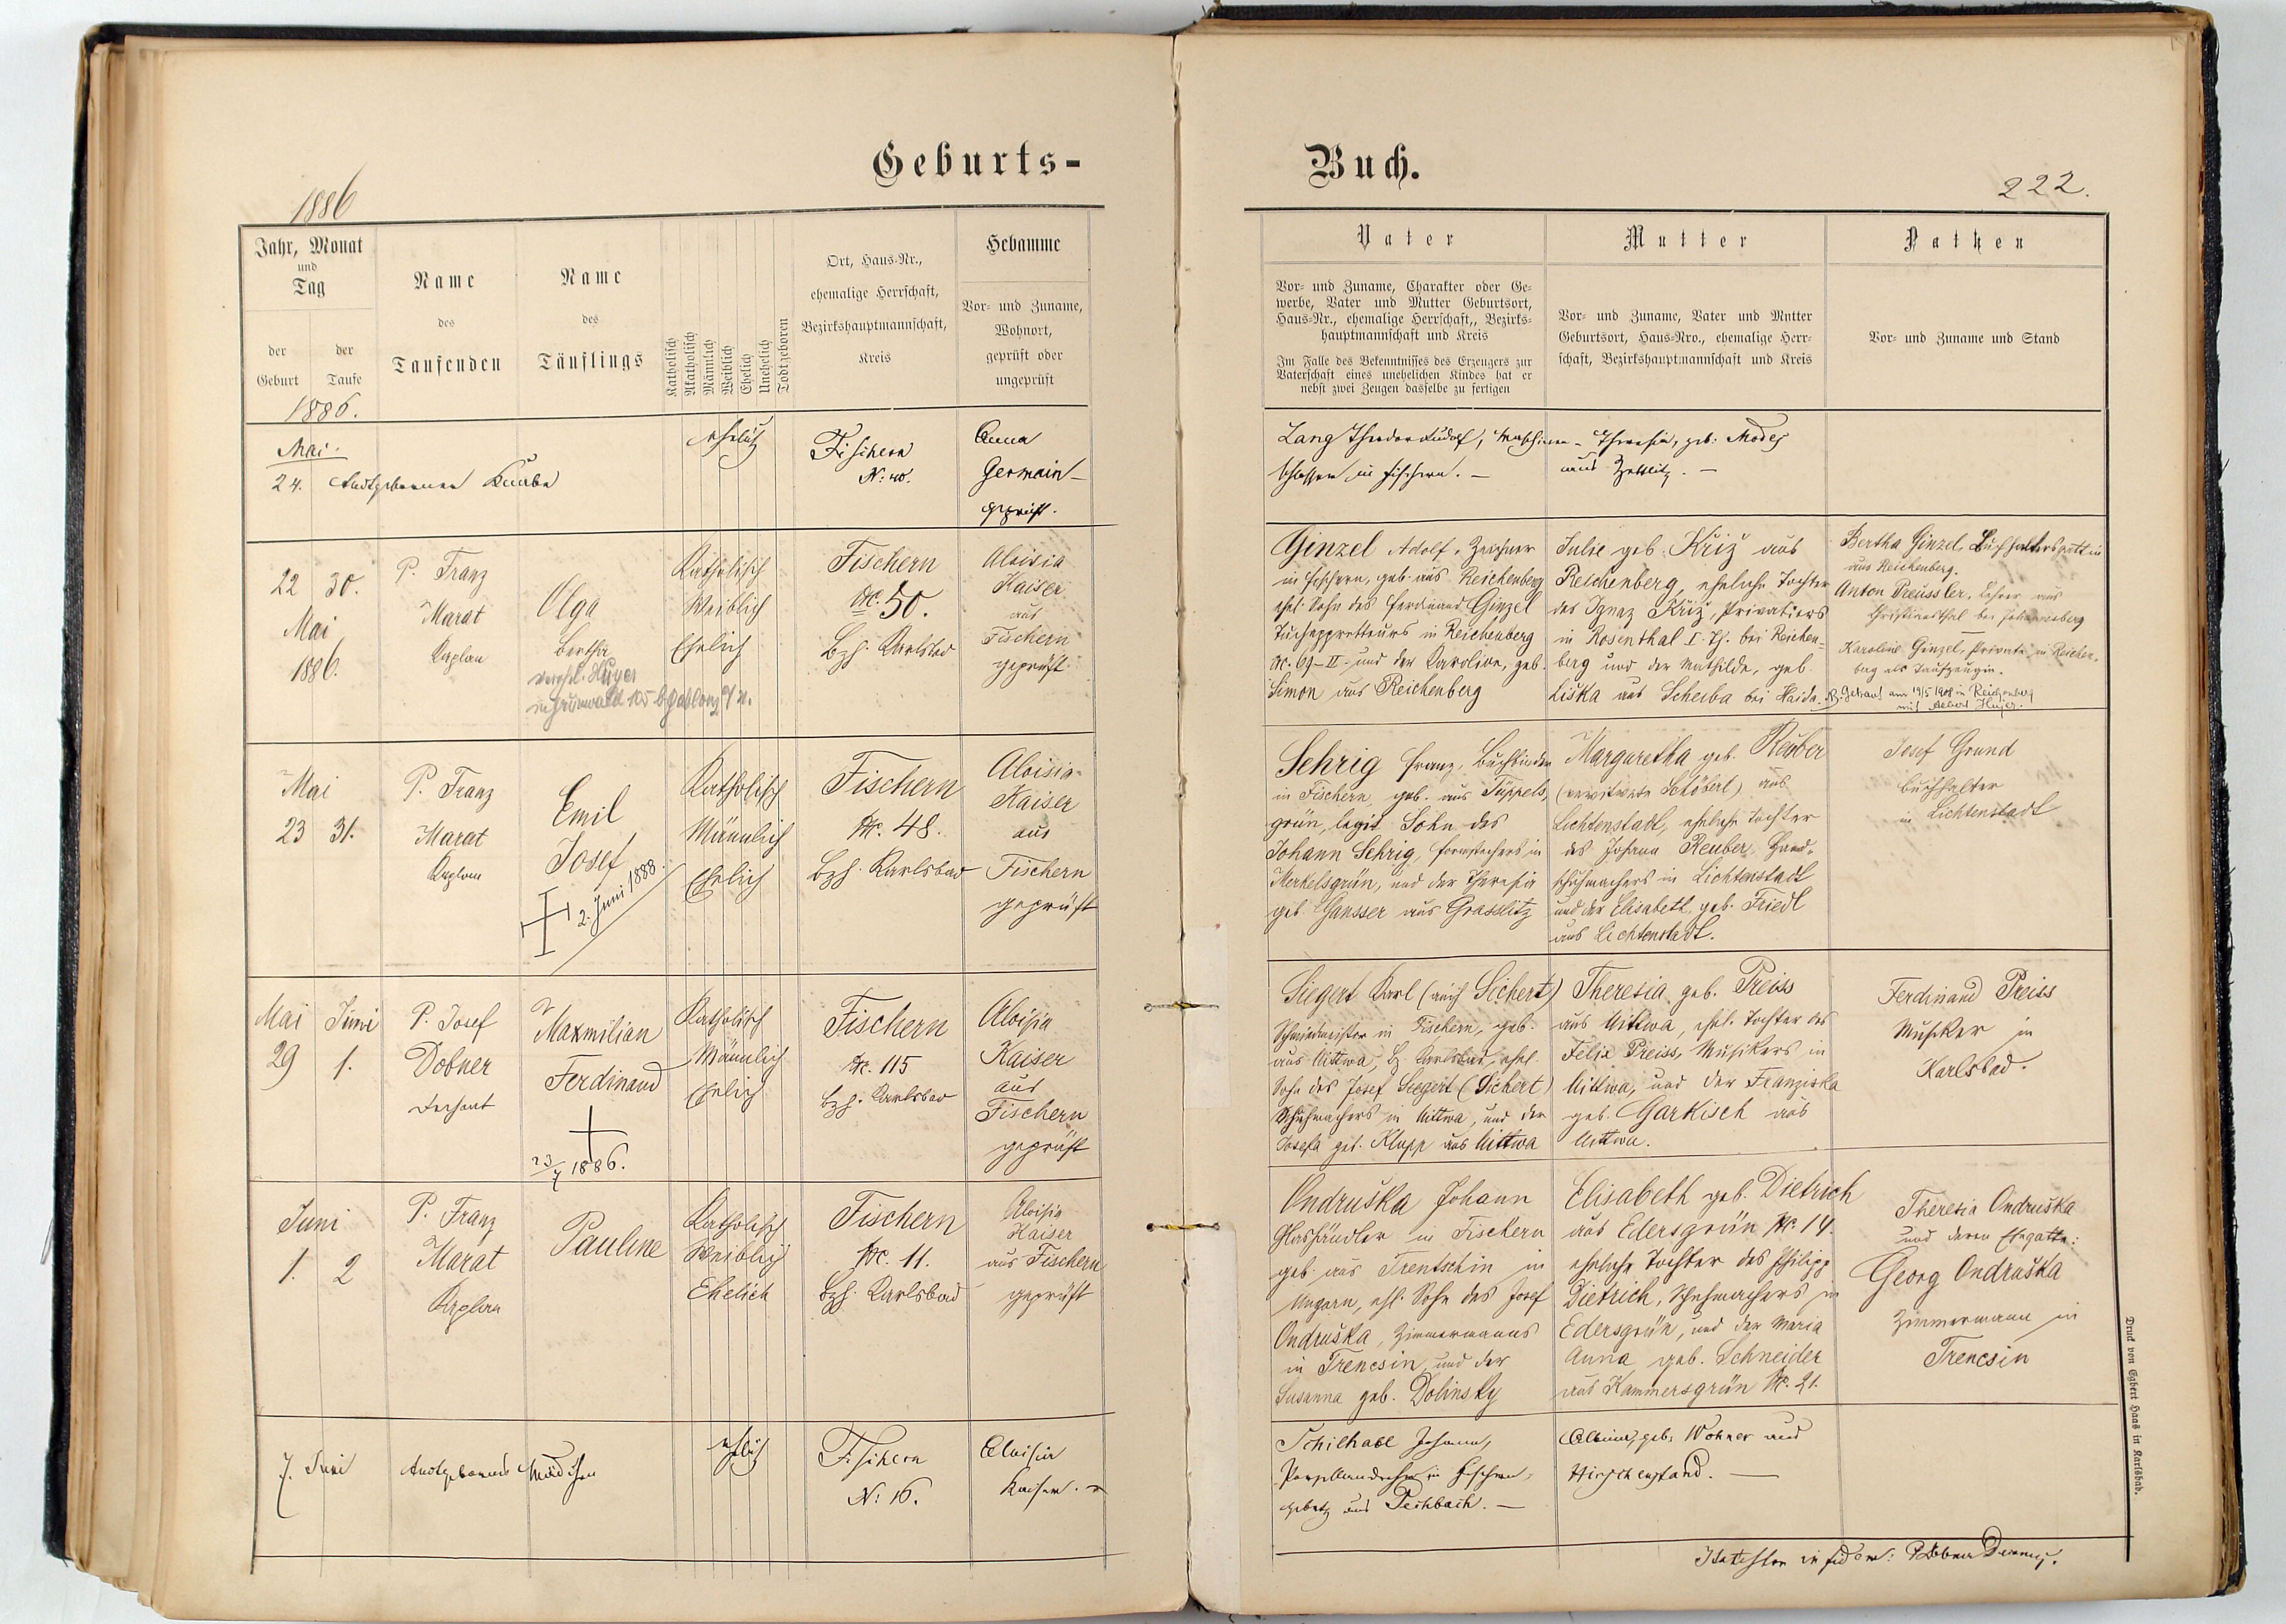 Geburts-
1886
Jahr, Monat
und
Tag
der Geburt
der Taufe
1886.
Name
des
Taufenden
Name
des
Täuflings
Katholisch
Akatholisch
Männlich
Weiblich
Ehelich
Unehelich
Todtgeboren
Ort, Haus-Nr.,
ehemalige Herrschaft,
Bezirkshauptmannschaft,
Kreis
Hebamme
Vor- und Zuname,
Wohnort,
geprüft oder
ungeprüft
Mai
24.
Knabe
ehelich
Fischern
Anna
Germain
geprüft.
22 30.
Mai
1886.
P. Franz
Marat
Kaplan
Olga
Bertha
Katholisch
Weiblich
Ehelich
Fischern
Nc. 50.
Bzh. Karlsbad
Aloisia
Kaiser
aus
Fischern
geprüft
Mai
23 31.
P. Franz
Marat
Kaplan
Emil
Josef
2. Juni 1888.
Katholisch
Männlich
Ehelich
Fischern
Nc. 48.
Bzh. Karlsbad
Aloisia
Kaiser
aus
Fischern
geprüft
Mai Juni
29 1.
P. Josef
Dobner
Dechant
Maxmilian
Ferdinand
23/7 1886.
Katholisch
Männlich
Ehelich
Fischern
Nc. 115
Bzh. Karlsbad
Aloisia
Kaiser
aus
Fischern
geprüft
Juni
1. 2
P. Franz
Marat
Kaplan
Pauline
Katholisch
Weiblich
Ehelich
Fischern
Nc. 11.
Bzh. Karlsbad
Aloisia
Kaiser
aus Fischern
geprüft
7. Juni
Mädchen
ehelich
Fischern
N: 16.
Aloisia
Kaiser.
Buch.
222.
Vater
Vor- und Zuname, Charakter oder Ge-
werbe, Vater und Mutter Geburtsort,
Haus-Nr., ehemalige Herrschaft,, Bezirks-
hauptmannschaft und Kreis
Im Falle des Bekenntnisses des Erzeugers zur
Vaterschaft eines unehelichen Kindes hat er
nebst zwei Zeugen dasselbe zu fertigen
Mutter
Vor- und Zuname, Vater und Mutter
Geburtsort, Haus-Nro., ehemalige Herr-
schaft, Bezirkshauptmannschaft und Kreis
Pathen
Vor- und Zuname und Stand
Lang Theodor Rudolf, Maschinen-
schlosser in Fischern.
Theresia, geb. Moder
aus Zettlitz.
Ginzel Adolf, Zeichner
in Fischern, geb. aus Reichenberg
ehel. Sohn des Ferdinand Ginzel
Tuchappretteurs in Reichenberg
Nc. 69-II. und der Karoline, geb.
Simon aus Reichenberg
Julie geb. Křiž aus
Reichenberg, eheliche Tochter
des Ignaz Křiž, Privatiers
in Rosenthal I. Th. bei Reichen-
berg und der Mathilde, geb.
Liška aus Scheiba bei Haida.
Bertha Ginzel, Buchhaltersgattin
aus Reichenberg.
Anton Preussler, Lehrer aus
Christiansthal bei Johannesberg
Karoline Ginzel, Private in Reichen-
berg als Taufzeugin.
Getraut am 19/5 1908 in Reichenberg
mit Hujer.
Sehrig Franz, Buchbinder
in Fischern, geb. aus Tüppels-
grün, legit. Sohn des
Johann Sehrig, Formstechers in
Merkelsgrün, und der Theresia
geb. Gansser aus Grasslitz
Margaretha geb. Reuber
(verwitwete Schöberl) aus
Lichtenstadt, eheliche Tochter
des Johann Reuber, Hand-
schuhmachers in Lichtenstadt
und der Elisabeth, geb. Friedl
aus Lichtenstadt.
Josef Grund
Buchhalter
in Lichtenstadt
Siegert Karl (auch Sichert)
in Fischern, geb.
aus Mittwa, B. Karlsbad, ehel.
Sohn des Josef Siegert (Sichert)
Schuhmachers in Mittwa, und der
Josefa geb. Klupp aus Mittwa
Theresia geb. Preiss
aus Mittwa, ehel. Tochter des
Felix Preiss, Musikers in
Mittwa, und der Franziska
geb. Garkisch aus
Mittwa.
Ferdinand Preiss
Musiker in
Karlsbad.
Ondruška Johann
Glashändler in Fischern
geb. aus Trentschin in
Ungarn, ehl. Sohn des Josef
Ondruška, Zimmermanns
in Trencsin, und der
Susanna geb. Dolinsky
Elisabeth geb. Dietrich
aus Edersgrün Nc. 14.
eheliche Tochter des Philipp
Dietrich, Schuhmachers in
Edersgrün, und der Maria
Anna geb. Schneider
aus Kammersgrün Nc. 21.
Theresia Ondruška
und deren Ehegatte:
Georg Ondruška
Zimmermann in
Trencsin
Schilhabl Johann,
Porzellandreher in Fischern,
aus Pechbach.
Albina, geb. Wohner aus
Hirschenstand.
Druck von Egbert Haas in Karlsbad.